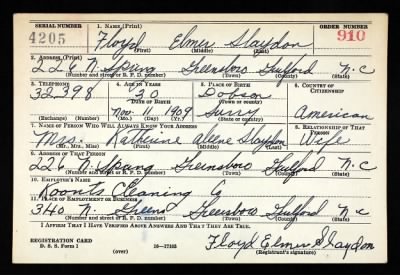 SERIAL NUMBER 1. NAME (Print) ORDER NUMBER
4205 Floyd Elmer Slaydon 910
(First) (Middle) (Last)
2. ADDRESS (Print)
226 N. Spring Greensboro Guilford N.C
(Number and street or R. F. D. number) (Town) (County) (State)
3. TELEPHONE 4. AGE IN YEARS 5. PLACE OF BIRTH 6. COUNTRY OF CITIZENSHIP
32398 30 Dobson
DATE OF BIRTH (Town or county)
Nov. 11 1909 Surry American
(Exchange) (Number) (Mo.) (Day) (Yr.) (State or country)
7. NAME OF PERSON WHO WILL ALWAYS KNOW YOUR ADDRESS 8. RELATIONSHIP OF THAT PERSON
Mrs. Katherine Slaydon Wife
(Mr., Mrs., Miss) (First) (Middle) (Last)
9. ADDRESS OF THAT PERSON
226 N. Spring Greensboro Guilford N.C
(Number and street or R. F. D. number) (Town) (County) (State)
10. EMPLOYER'S NAME
Koonts Cleaning Co
11. PLACE OF EMPLOYMENT OR BUSINESS
340 N. Greene Greensboro Guilford N c
(Number and street or R. F. D. number) (Town) (County) (State)
I AFFIRM THAT I HAVE VERIFIED ABOVE ANSWERS AND THAT THEY ARE TRUE.
REGISTRATION CARD Floyd Elmer Slaydon
D. S. S. Form 1 (over) 16—17105 (Registrant's signature)